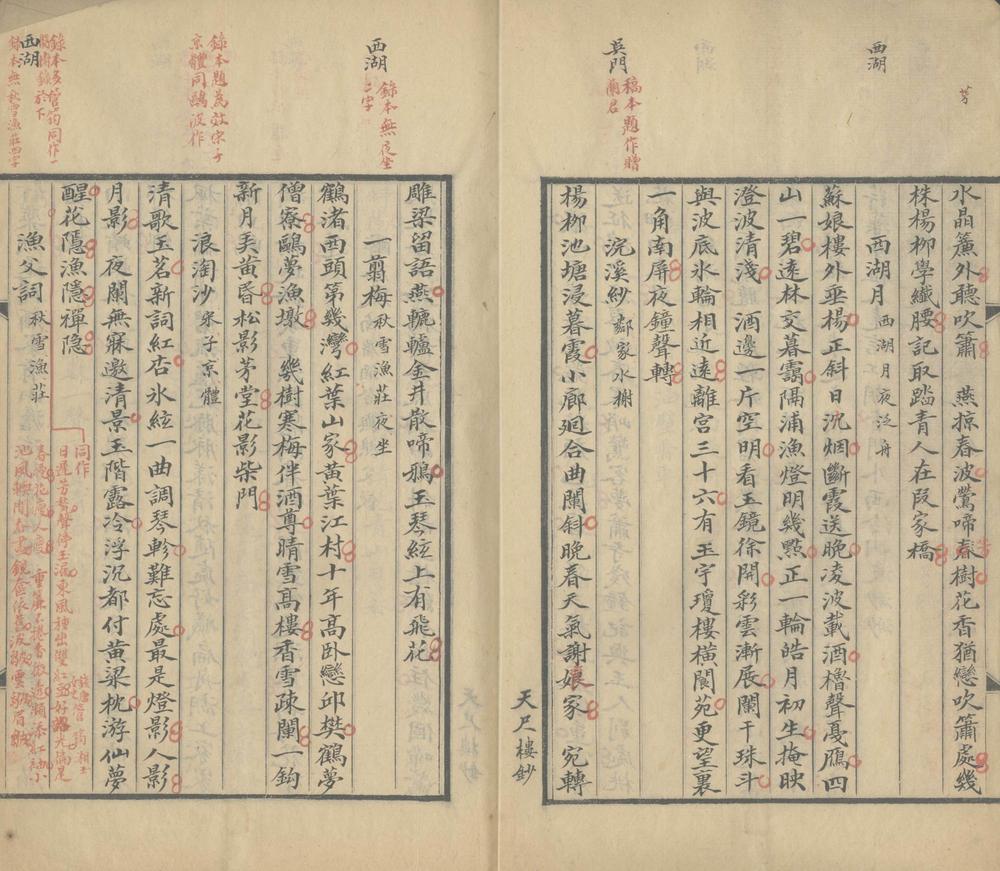 芳
水晶簾外聽吹簫　燕掠春波鶯啼春樹花香猶戀吹簫處幾
株楊柳學纖腰記取踏青人在段家橋
西湖
西湖月 西湖月夜泛舟
蘇娘樓外垂楊正斜日沉烟斷霞送晚凌波載酒櫓聲戞鴈四
山一碧遠林交暮靄隔浦漁燈明幾點正一輪皓月初生掩映
澄波清淺　酒邊一片空明看玉鏡徐開彩雲漸展闌干珠斗
與波底氷輪相近遠離宮三十六有玉宇瓊樓橫閬苑更望裏
一角南屏夜鐘聲轉
吳門
稿本題作贈
蘭君
浣溪紗 鄰家水榭
楊柳池塘浸暮霞小廊廻合曲闌斜晚春天氣謝孃家　宛轉
天尺樓鈔
雕梁留語燕轆轤金井散啼鴉玉琴絃上有飛花
西湖
錄本無夜坐
二字
一翦梅 秋雪漁莊夜坐
鶴渚西頭第幾灣紅葉山家黃葉江村十年高卧戀邱樊鶴夢
僧寮鷗夢漁墩　幾樹寒梅伴酒尊晴雪高樓香雪疎闌一鈎
新月美黃昏松影茅堂花影柴門
錄本題爲效宋子
京體同鷗波作
浪淘沙 宋子京體
清歌玉茗新詞紅杏氷絃一曲調琴軫難忘處最是燈影人影
月影　夜闌無寐邀清景玉階露冷浮沉都付黃粱枕游仙夢
醒花隱漁隱禪隐
同作
日遲芳樹鶯聲停玉漏東風種出雙紅豆好
春
重簾不捲香
西湖
漁父詞 秋雪漁莊
錄本無秋雪漁莊四字